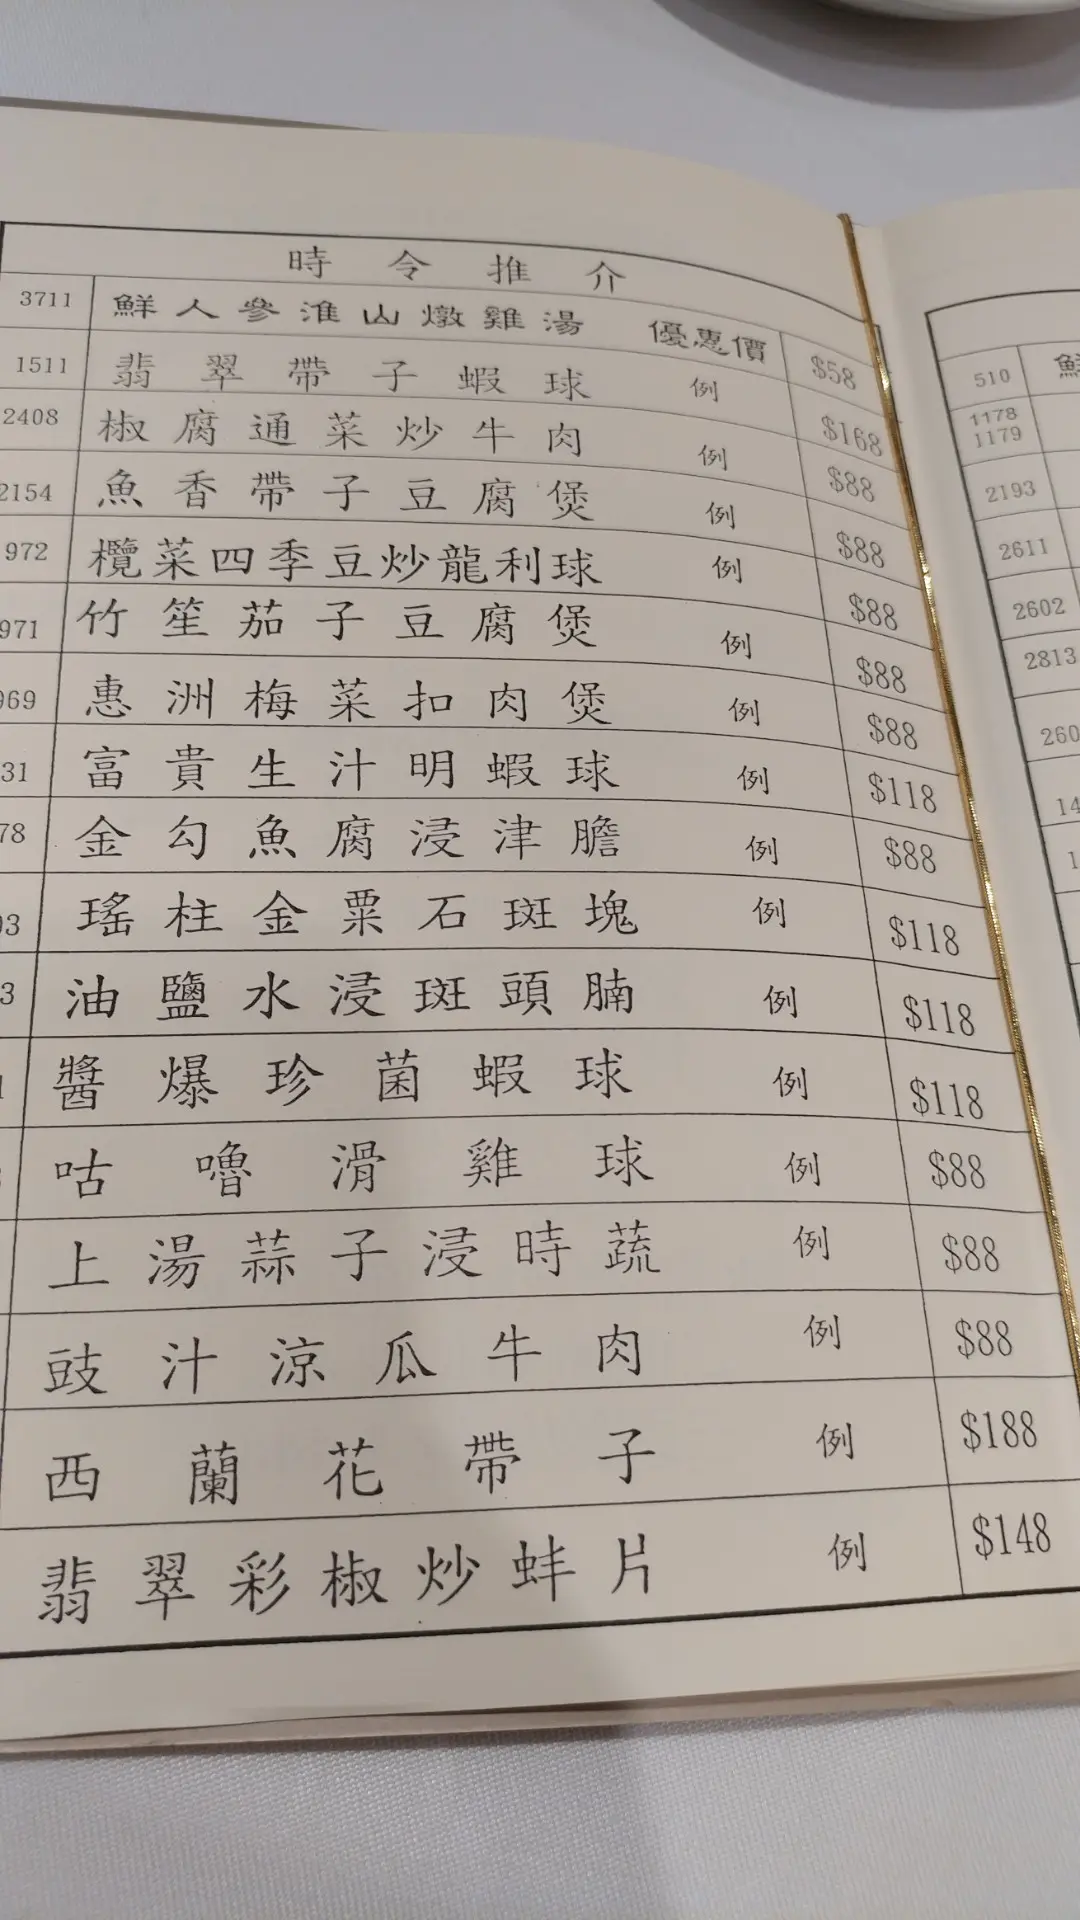 時令推介
3711 鮮人參淮山燉雞湯 優惠價 $58
1511 翡翠帶子蝦球 例 $168
2408 椒腐通菜炒牛肉 例 $88
2154 魚香帶子豆腐煲 例 $88
972 欖菜四季豆炒龍利球 例 $88
971 竹笙茄子豆腐煲 例 $88
969 惠洲梅菜扣肉煲 例 $88
31 富貴生汁明蝦球 例 $118
78 金勾魚腐浸津膽 例 $88
93 瑤柱金粟石斑塊 例 $118
3 油鹽水浸斑頭腩 例 $118
醬爆珍菌蝦球 例 $118
咕嚕滑雞球 例 $88
上湯蒜子浸時蔬 例 $88
豉汁涼瓜牛肉 例 $88
西蘭花帶子 例 $188
翡翠彩椒炒蚌片 例 $148
510 鮮
1178
1179
2193
2611
2602
2813
260
14
1